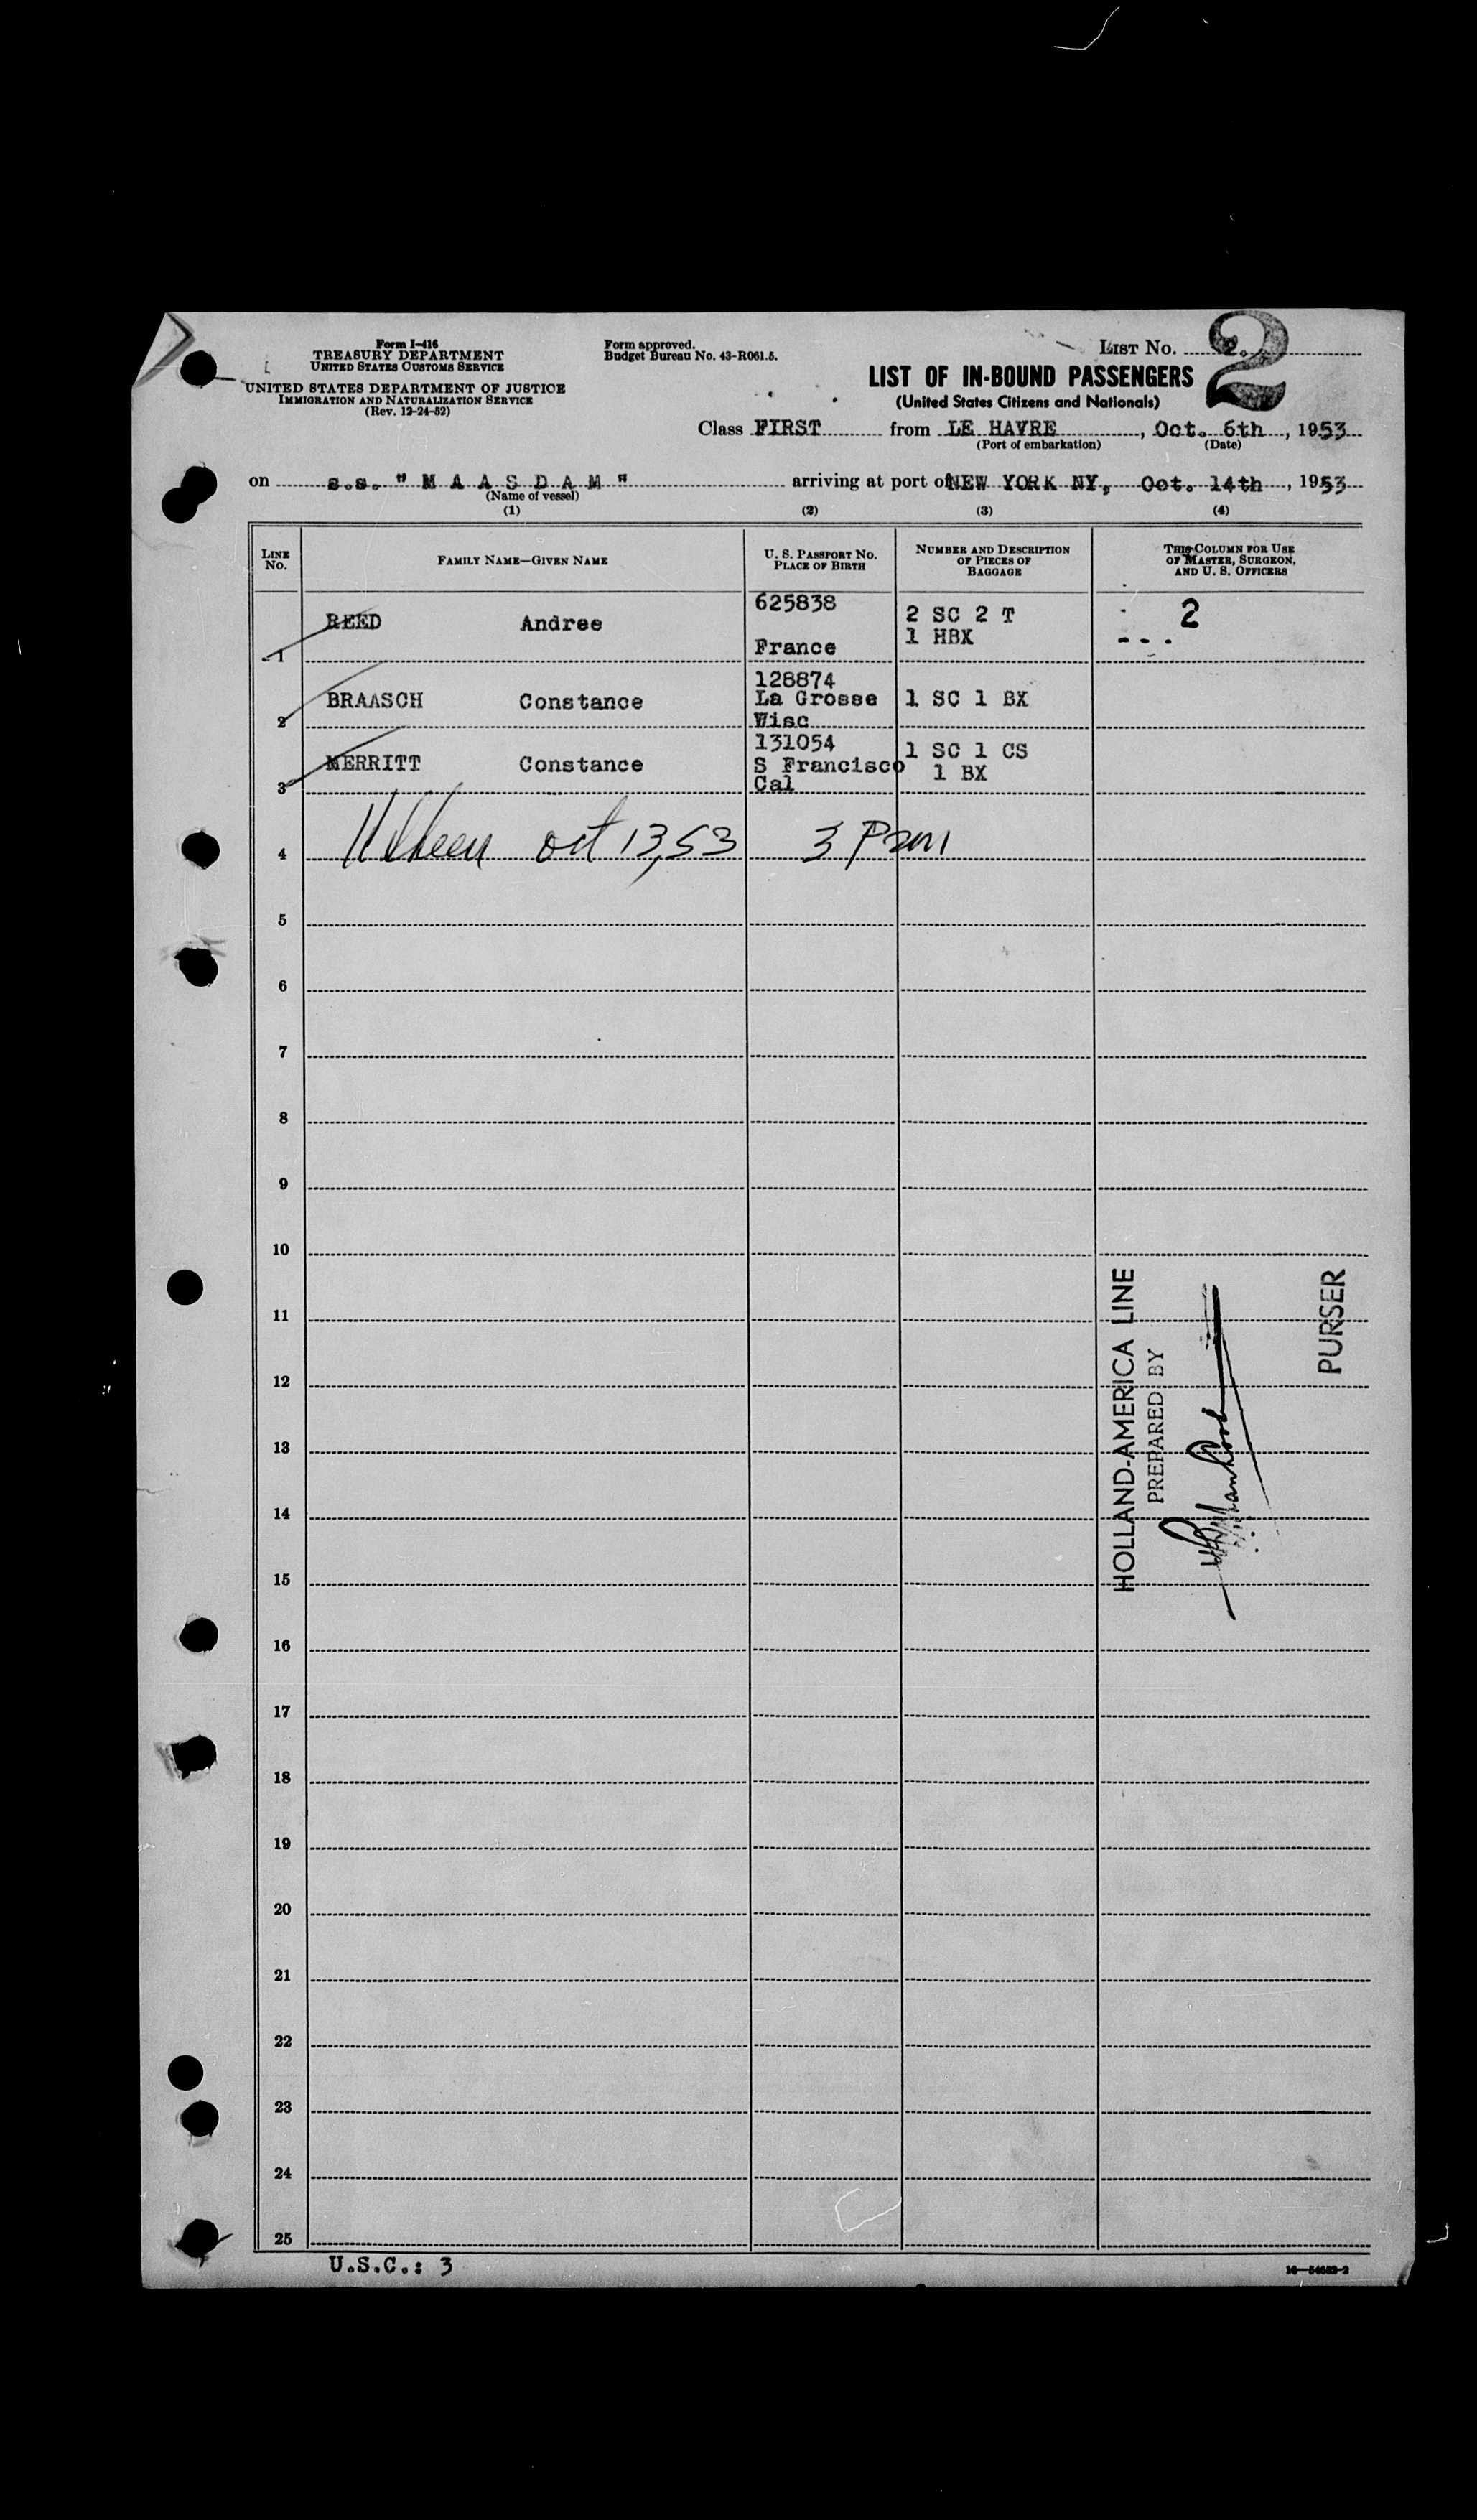 Form I-416
TREASURY DEPARTMENT
UNITED STATES CUSTOMS SERVICE
UNITED STATES DEPARTMENT OF JUSTICE
IMMIGRATION AND NATURALIZATION SERVICE
(Rev. 12-24-52)
Form approved.
Budget Bureau No. 43-R061.5.
LIST NO. 2.
2
LIST OF IN-BOUND PASSENGERS
(United States Citizens and Nationals)
Class FIRST from LE HAVRE, Oct. 6th, 1953
(Port of embarkation) (Date)
on s.s. " M A A S D A M " arriving at port of NEW YORK NY, Oct. 14th, 1953
(Name of vessel)
(1) (2) (3) (4)
LINE NO.
FAMILY NAME—GIVEN NAME
U. S. PASSPORT NO.
PLACE OF BIRTH
NUMBER AND DESCRIPTION
OF PIECES OF
BAGGAGE
THIS COLUMN FOR USE
OF MASTER, SURGEON,
AND U. S. OFFICERS
1 REED Andree 625838 France 2 SC 2 T 1 HBX 2
2 BRAASCH Constance 128874 La Grosse Wisc 1 SC 1 BX
3 MERRITT Constance 131054 S Francisco Cal 1 SC 1 CS 1 BX
4 oct 13, 53 3
5
6
7
8
9
10
11
12
13
14
15
16
17
18
19
20
21
22
23
24
25
HOLLAND-AMERICA LINE
PREPARED BY
PURSER
U.S.C.: 3